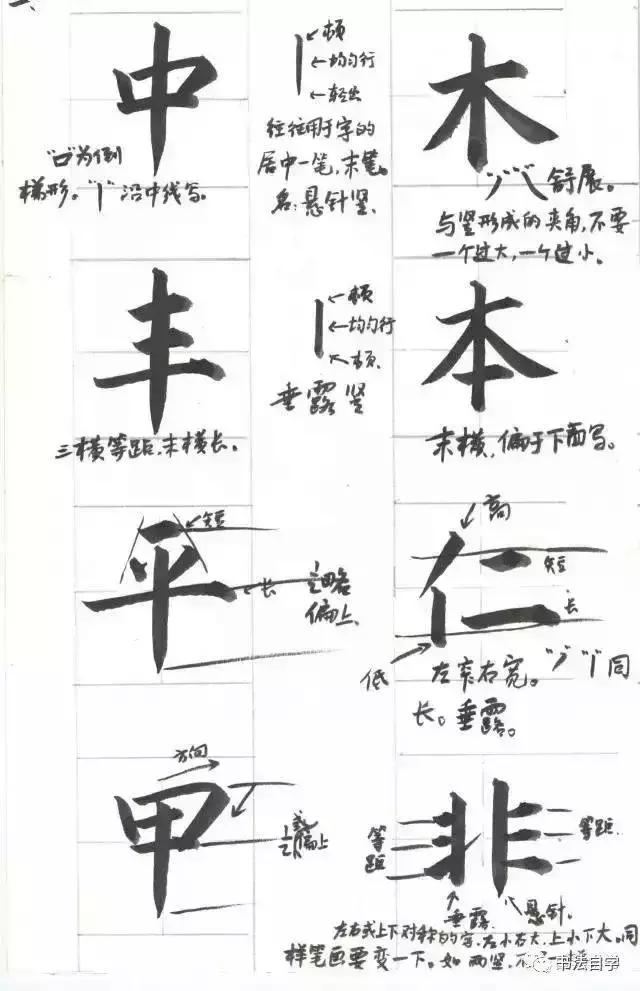 中
顿
均匀行
轻出
往往用于字的
居中一笔,末笔。
名:悬针竖.
"口"为倒
梯形。"丨"沿中线写。
木
"丿"㇏"舒展。
与竖形成的夹角,不要
一个过大,一个过小。
丰
三横等距,末横长。
顿
均匀行
顿.
垂露竖
本
末横,偏于下面写。
平
短
长
1/2略
偏上.
仁
高
短
长
低
左窄右宽。"丿""丨"同
长。垂露。
甲
方向
1/2
偏上
非
等
距
等距.
垂露.
悬针.
左右或上下对称的字,左小右大,上小下大。同
样笔画要变一下。如两竖,不
书法自学